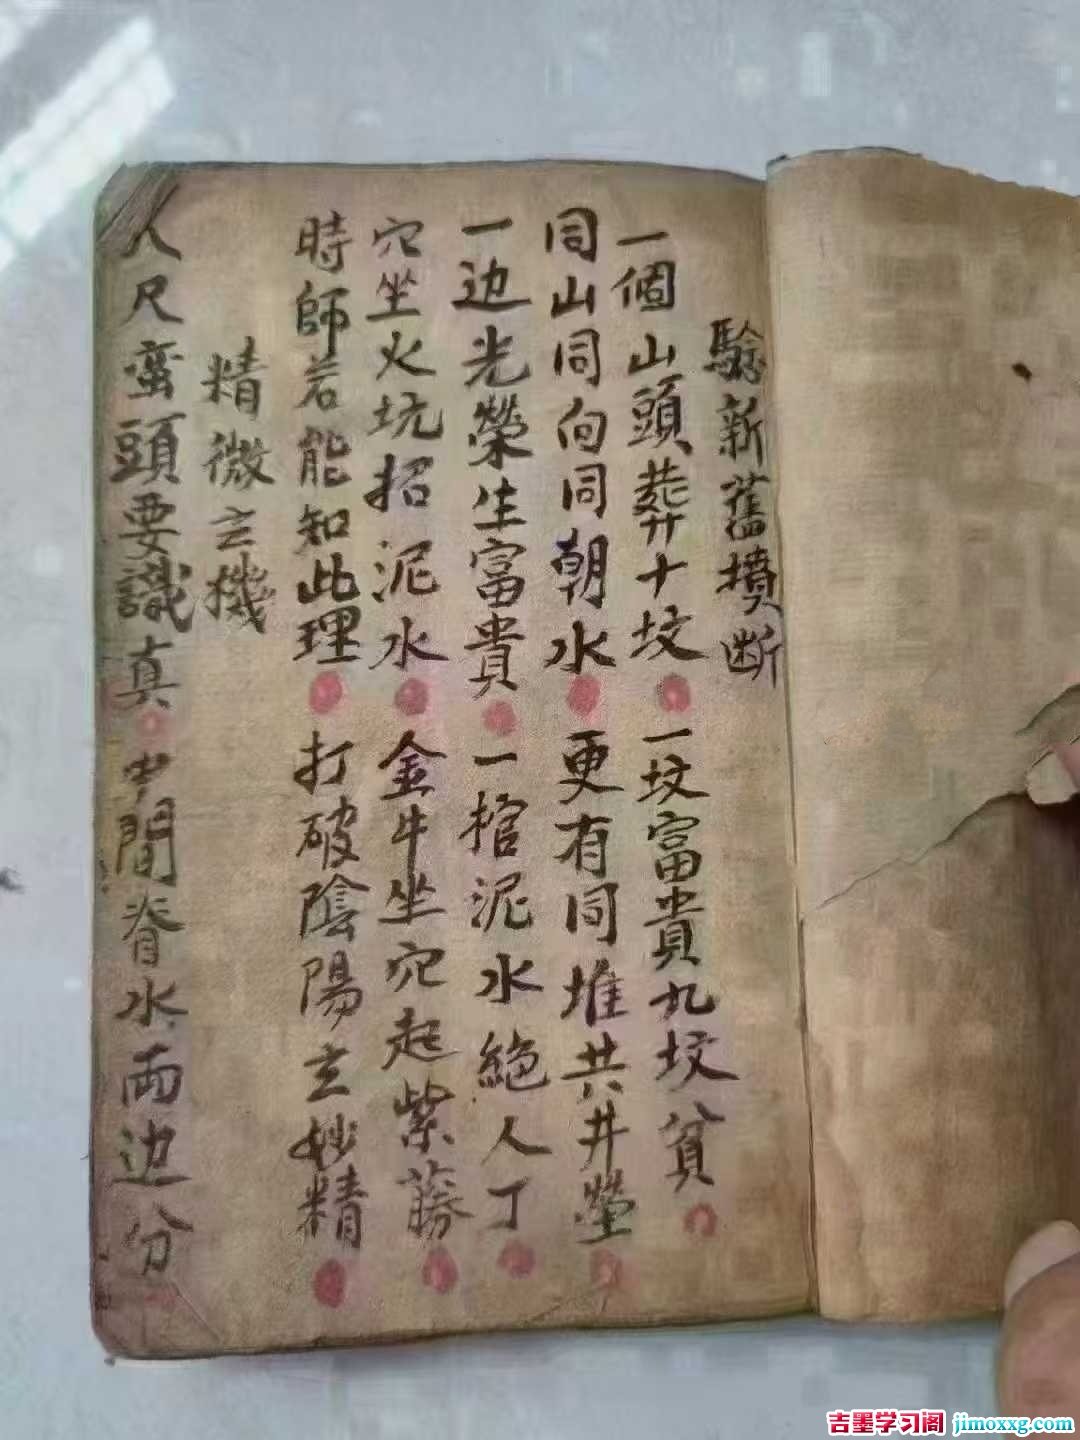 驗新舊墳断
一個山頭葬十坟 一坟富貴九坟貧
同山同向同朝水 更有同堆共井塋
一边光榮生富貴 一棺泥水絕人丁
穴坐火坑招泥水 金牛坐穴起紫藤
時師若能知此理 打破陰陽玄妙精
精微玄機
人尺蛮頭要識真 中間脊水両边分
吉墨学习阁 jimoxxg.com